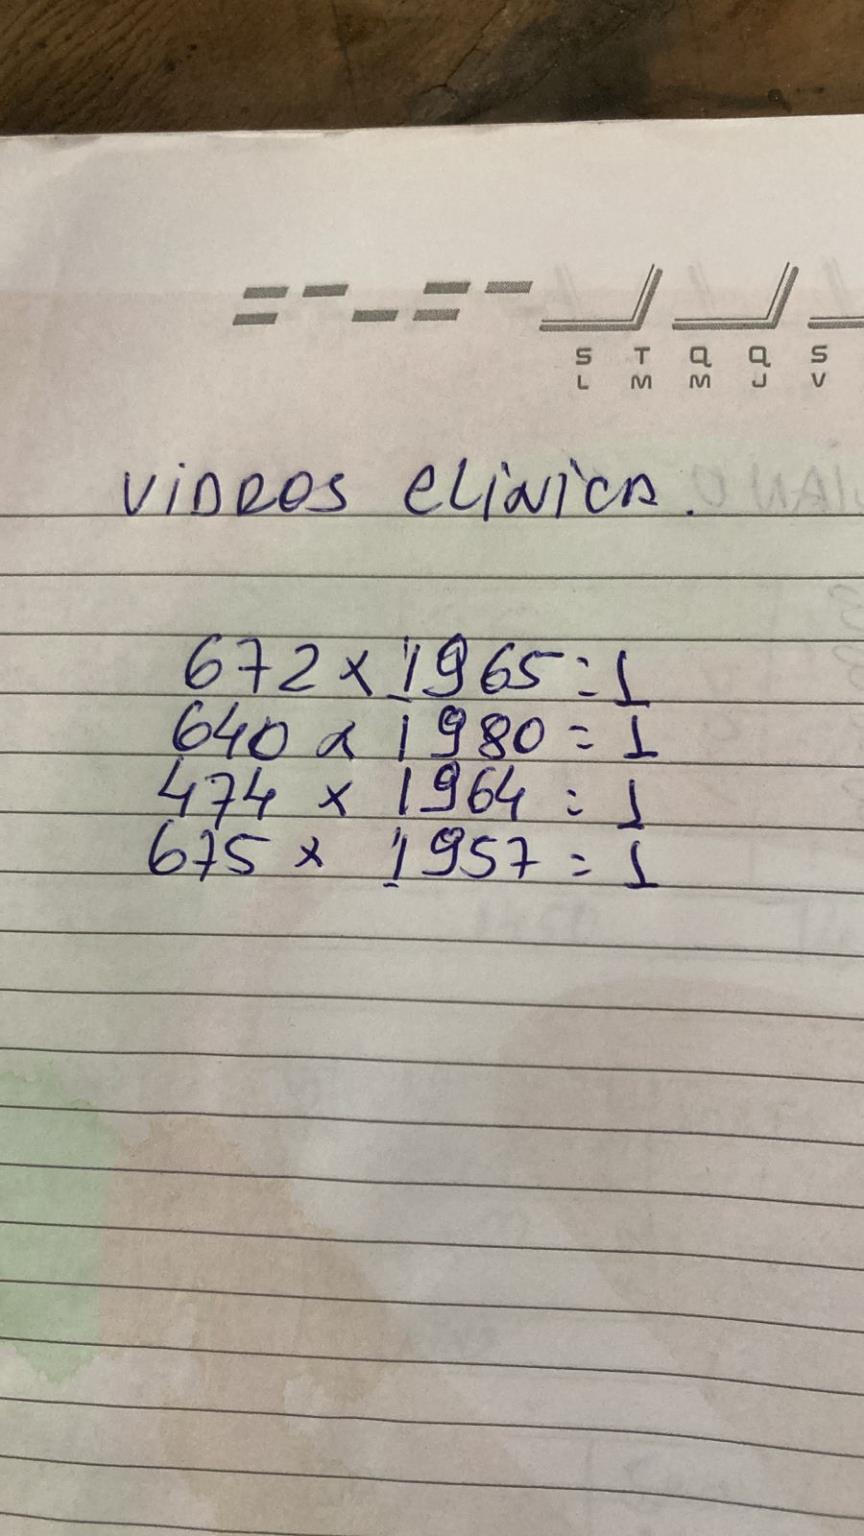 S T Q Q S
L M M J V
VIDROS CLINICA.
672 x 1965 = 1
640 x 1980 = 1
474 x 1964 = 1
675 x 1957 = 1